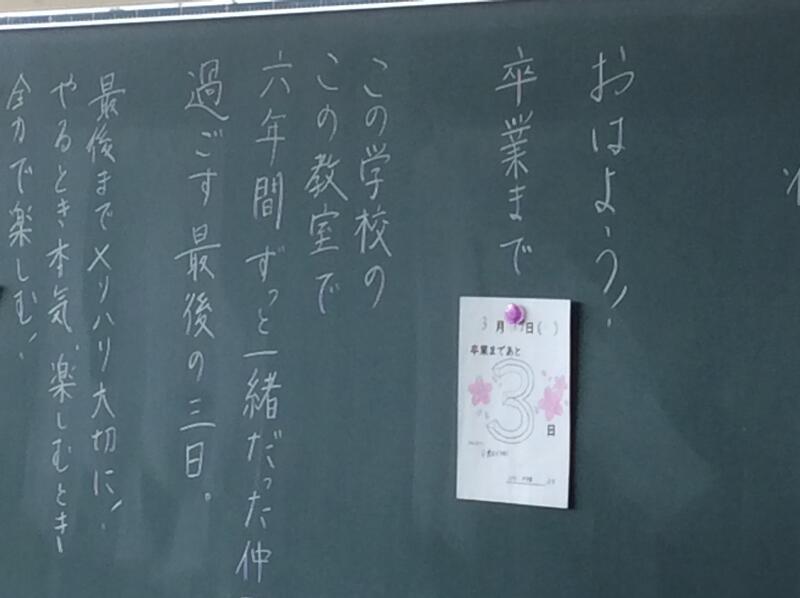 おはよう!
卒業まで
3月 日( )
卒業まであと
3
日
この学校の
この教室で
六年間ずっと一緒だった仲
過ごす最後の三日。
最後までメリハリ大切に!
やるとき本気、楽しむとき
全力で楽しむ!